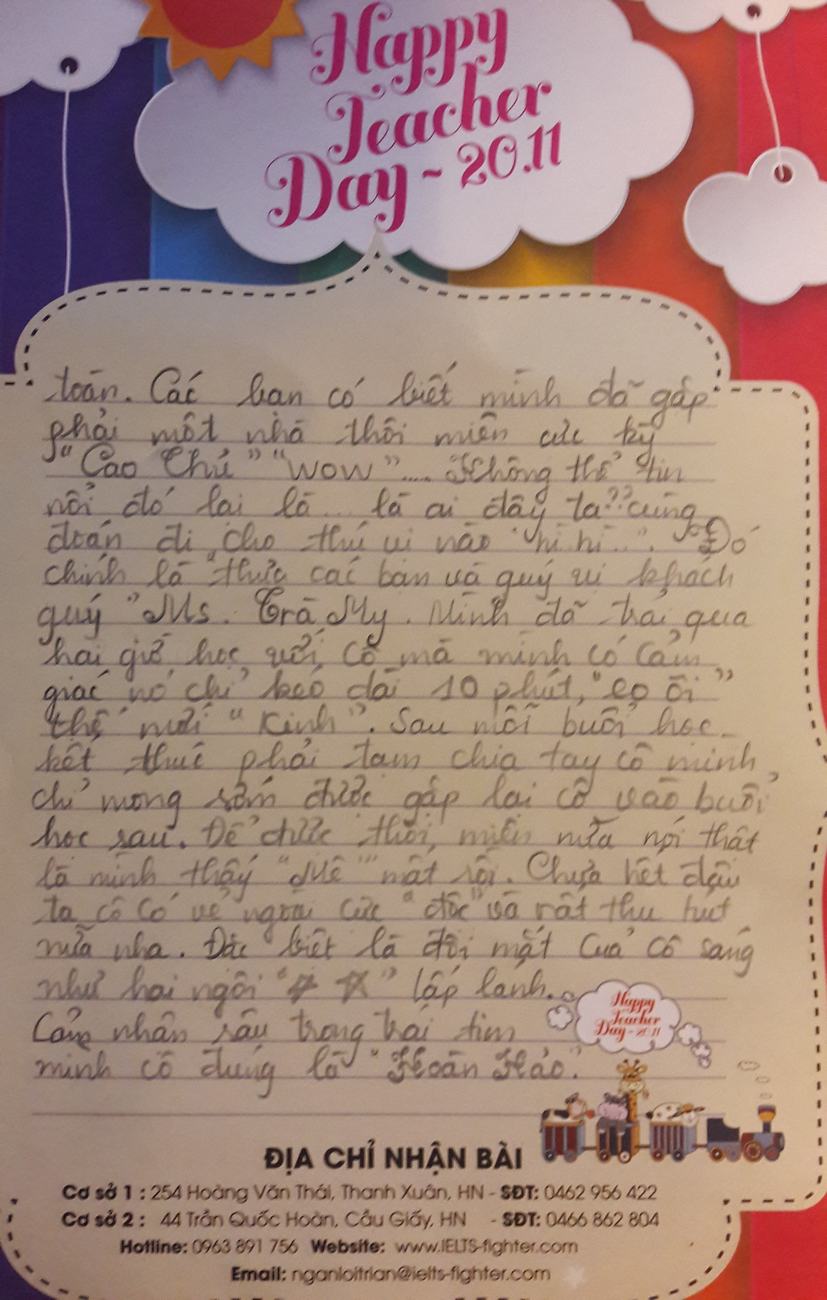 Happy
Teacher
Day ~ 20.11
toán. Các bạn có biết mình đã gặp
phải một nhà thôi miên cực kỳ
"Cao Thủ" "WOW".... Không thể tin
nổi đó lại là... là ai đây ta?? cùng
đoán đi cho thú vị nào "hì hì...". Đó
chính là "thưa các bạn và quý vị khách
quý" Ms. Trà My. Mình đã trải qua
hai giờ học với cô mà mình có cảm
giác nó chỉ kéo dài 10 phút, "eo ôi"
thế mới "Kinh". Sau mỗi buổi học
kết thúc phải tạm chia tay cô mình
chỉ mong sớm được gặp lại cô vào buổi
học sau. Để được thôi miên nữa nói thật
là mình thấy "Mê" mất rồi. Chưa hết đâu
ta cô có vẻ ngoài cực "độc" và rất thu hút
nữa nha. Đặc biệt là đôi mắt của cô sáng
như hai ngôi "☆ ☆" lấp lánh.
Cảm nhận sâu trong trái tim
mình cô đúng là "Hoàn Hảo".
Happy
Teacher
Day ~ 20.11
ĐỊA CHỈ NHẬN BÀI
Cơ sở 1 : 254 Hoàng Văn Thái, Thanh Xuân, HN - SĐT: 0462 956 422
Cơ sở 2 : 44 Trần Quốc Hoàn, Cầu Giấy, HN - SĐT: 0466 862 804
Hotline: 0963 891 756 Website: www.IELTS-fighter.com
Email: nganloitrian@ielts-fighter.com